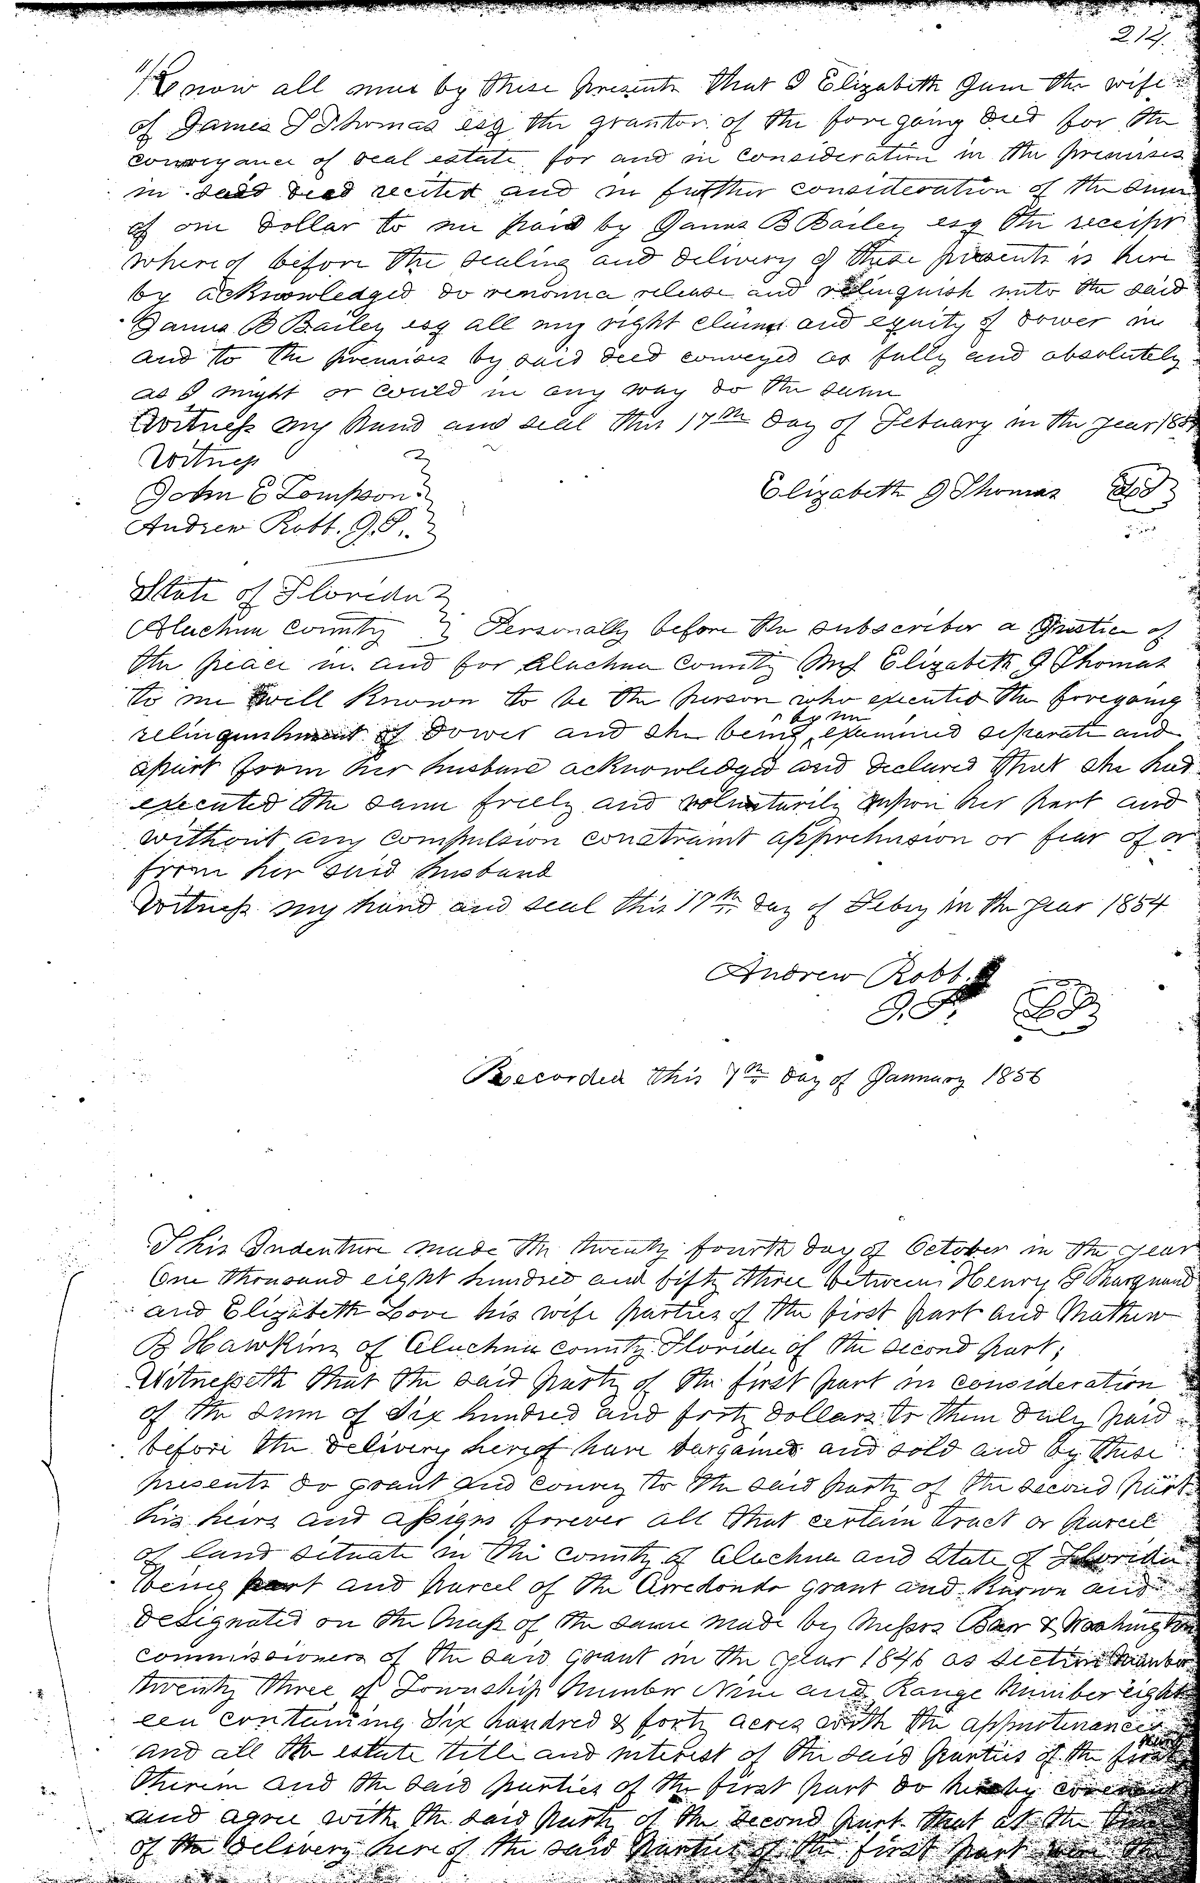 214.
Know all men by these presents that I Elizabeth Jane the wife
of James S Thomas esq the grantor of the foregoing deed for the
conveyance of real estate for and in consideration in the premises
in said deed recited and in further consideration of the sum
of one dollar to me paid by James B Bailey esq the receipt
where of before the sealing and delivery of these presents is here
by acknowledged do renounce release and relinquish unto the said
James B Bailey esq all my right claims and equity of dower in
and to the premises by said deed conveyed as fully and absolutely
as I might or could in any way do the same
Witness my hand and seal this 17th day of Febuary in the year 1854
Witness
John E Tompson
Elizabeth J Thomas LS
Andrew Robb. J.P.
State of Florida
Alachua county Personally before the subscriber a Justice of
the peace in and for Alachua County Mrs Elizabeth J Thomas
to me well known to be the person who executed the foregoing
relinquishment of dower and she being by me examined separate and
apart from her husband acknowledged and declared that she had
executed the same freely and voluntarily upon her part and
without any compulsion constraint apprehension or fear of or
from her said husband
Witness my hand and seal this 17th day of Feby in the year 1854
Andrew Robb
J.P. LS
Recorded this 7th day of January 1856
This Indenture made the twenty fourth day of October in the year
One thousand eight hundred and fifty three between Henry G
and Elizabeth Love his wife parties of the first part and Mathew
B Hawkins of Alachua county Florida of the second part;
Witnesseth that the said party of the first part in consideration
of the sum of Six hundred and forty dollars to them duly paid
before the delivery hereof have bargained and sold and by these
presents do grant and convey to the said party of the second part
his heirs and assigns forever all that certain tract or parcel
of land situate in the county of Alachua and State of Florida
being part and parcel of the Arredondo grant and known and
designated on the map of the same made by Messrs Barr & Washington
commissioners of the said grant in the year 1846 as section number
twenty three of Township Number Nine and Range Number eight
een containing Six hundred & forty acres with the appurtenances
and all the estate title and interest of the said parties of the first part
therein and the said parties of the first part do hereby covenant
and agree with the said party of the second part that at the time
of the delivery here of the said parties of the first part were the